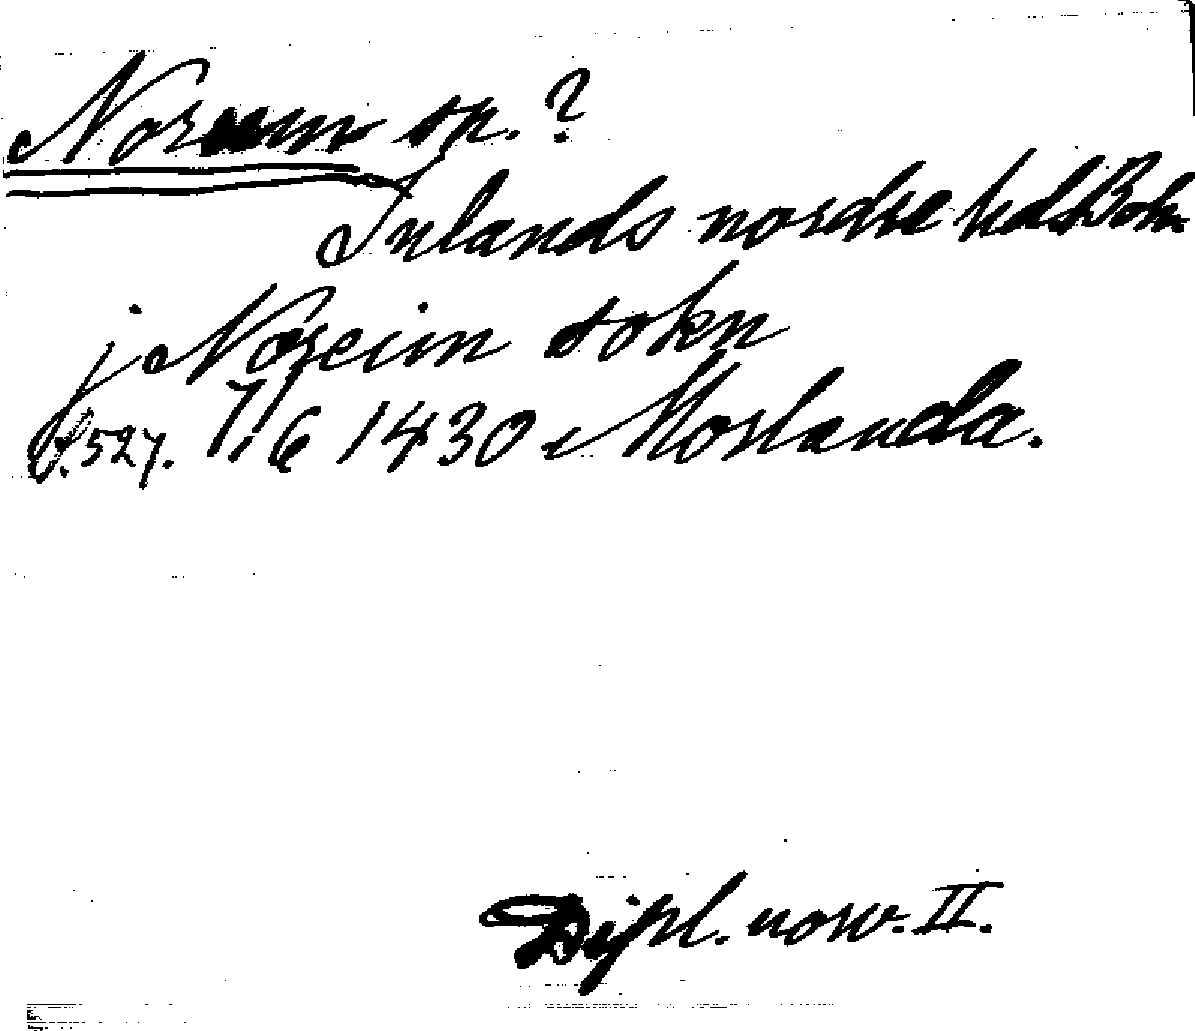 Noreum sn. ?
Inlands nordre hd Bohn
j Noreim sokn
s. 527. 7/6 1430 Morlanda.
Dipl. norv. II.